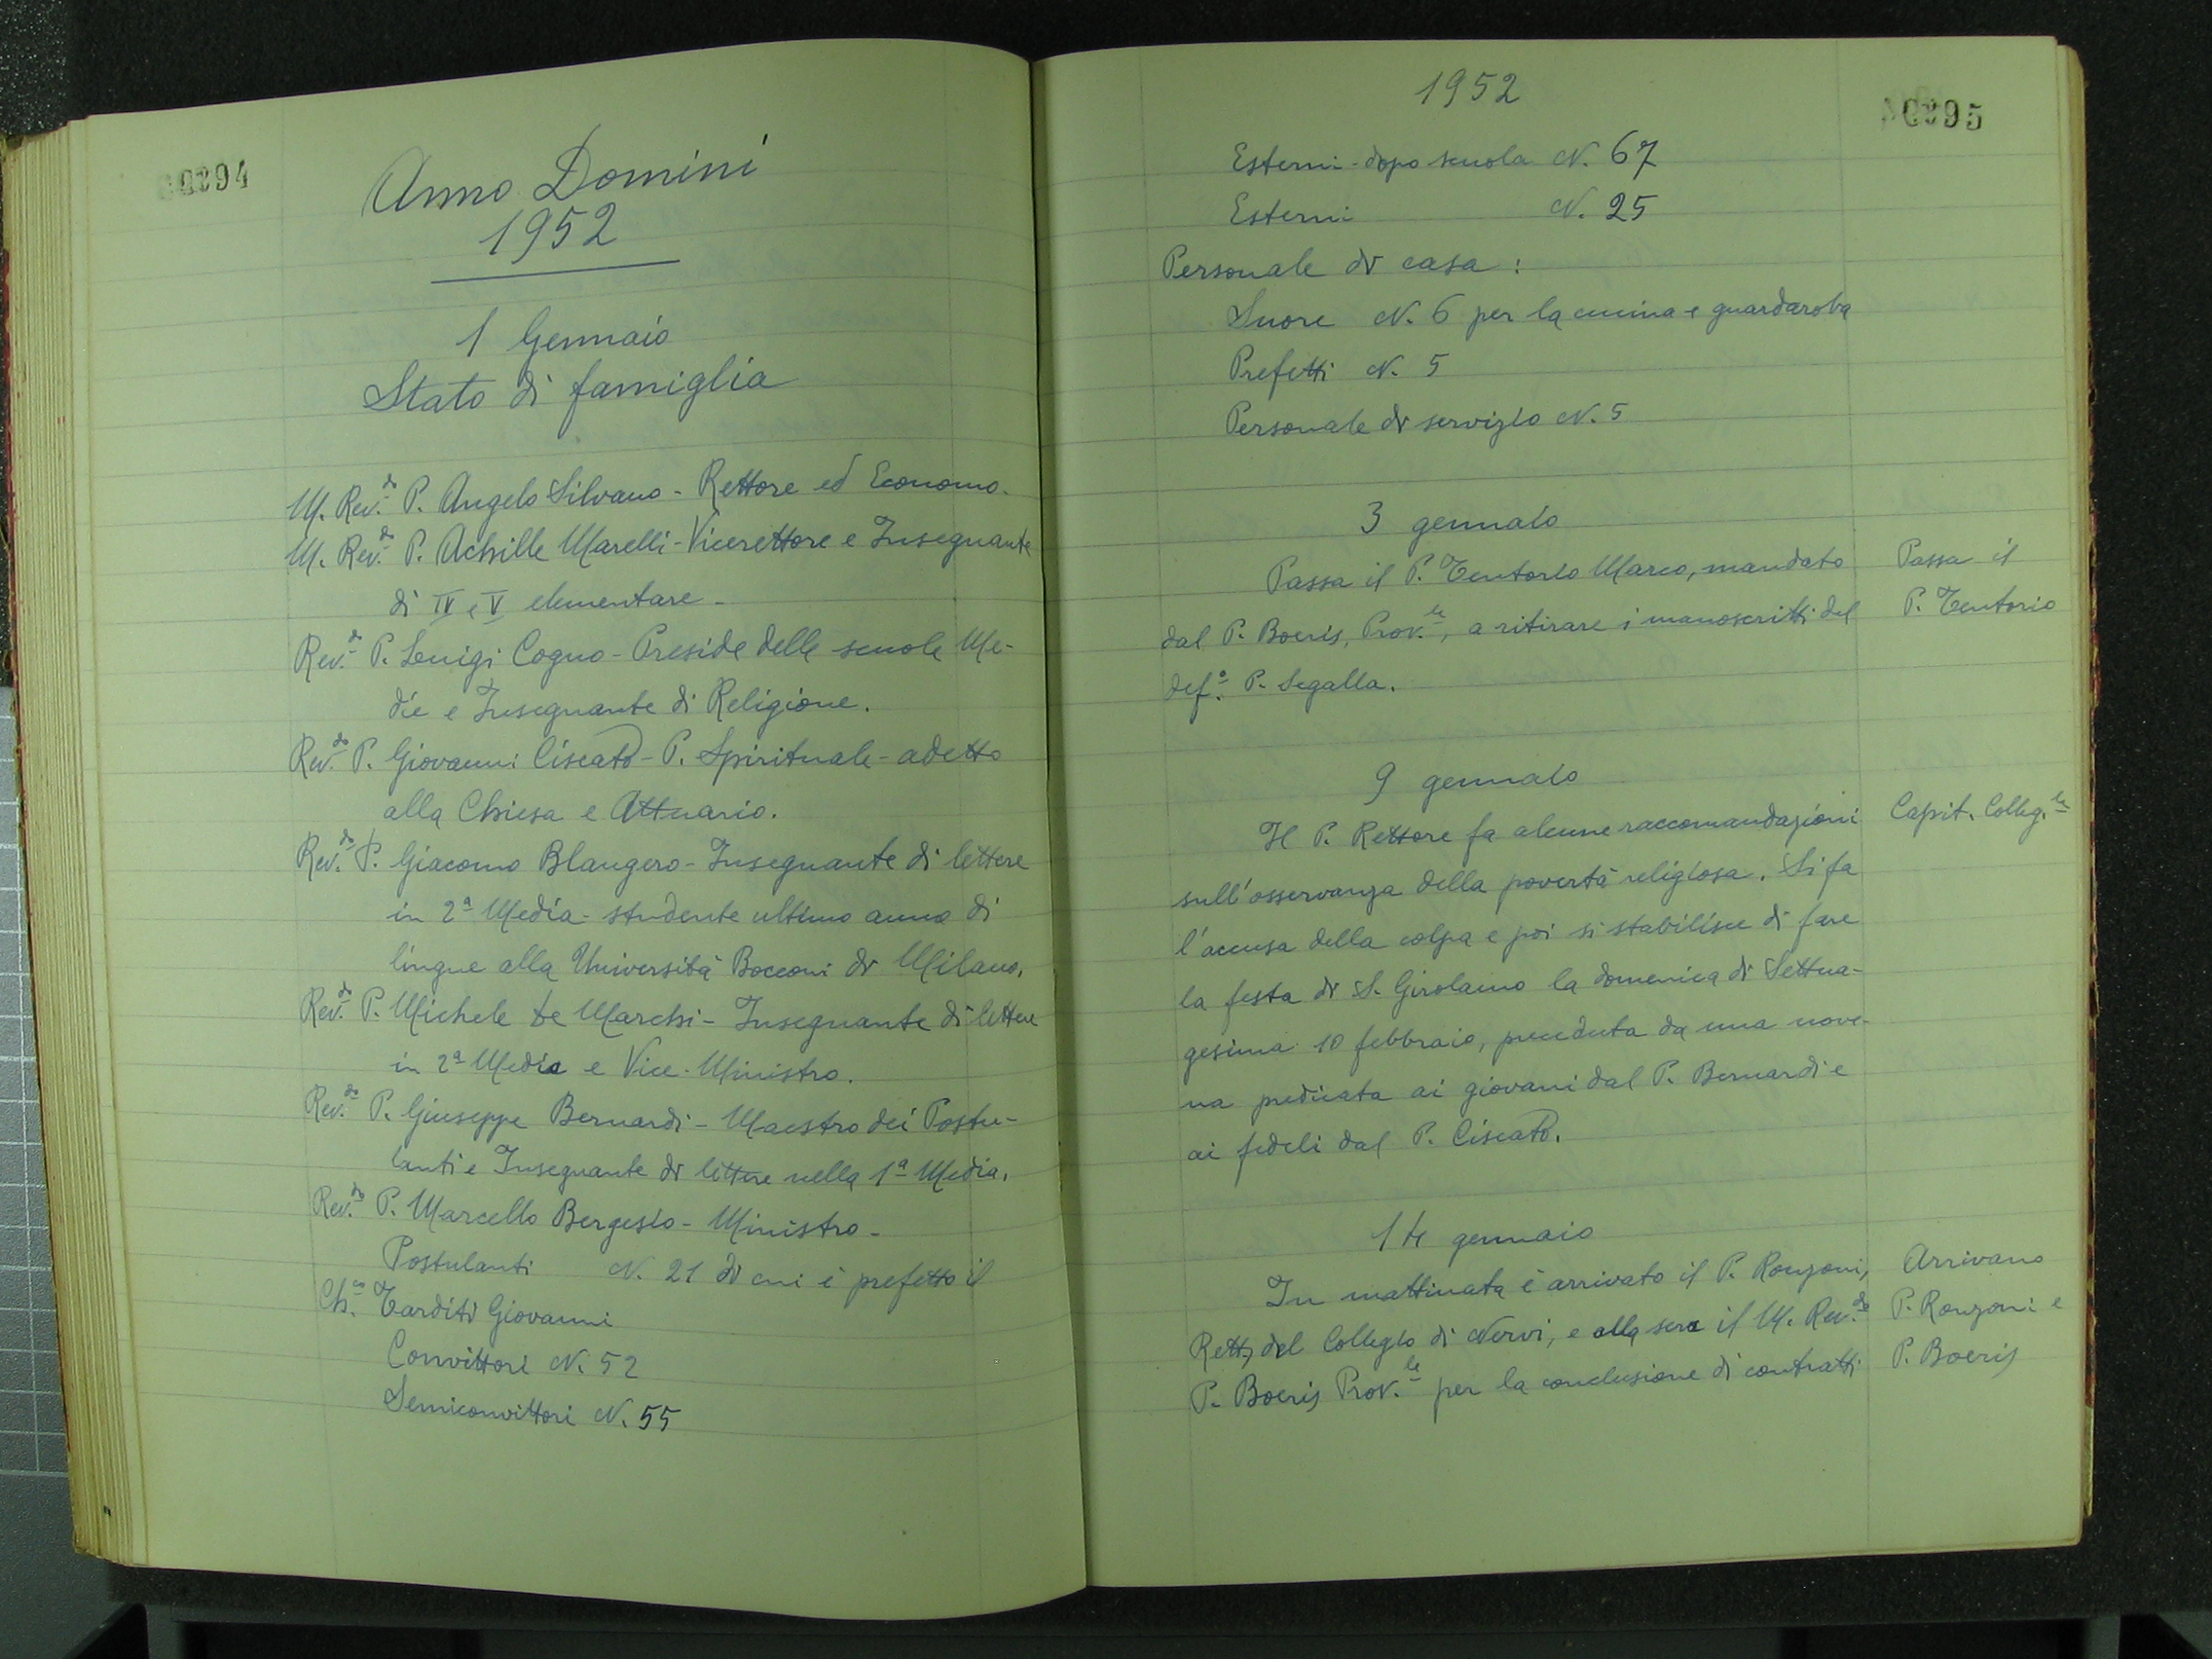 00394
Anno Domini
1952
1 Gennaio
Stato di famiglia
M. Rev.do P. Angelo Silvano - Rettore ed Economo.
M. Rev.do P. Achille Marelli - Vicerettore e Insegnante
di IV e V elementare -
Rev.do P. Luigi Cogno - Preside delle scuole Me-
die e Insegnante di Religione.
Rev.do P. Giovanni Ciscato - P. Spirituale - adetto
alla Chiesa e Attuario.
Rev.do P. Giacomo Blangero - Insegnante di lettere
in 2ª Media - studente ultimo anno di
lingue alla Università Bocconi di Milano.
Rev.do P. Michele De Marchi - Insegnante di lettere
in 2ª Media e Vice-Ministro.
Rev.do P. Giuseppe Bernardi - Maestro dei Postu-
lanti e Insegnante di lettere nella 1ª Media.
Rev.do P. Marcello Bergesio - Ministro -
Postulanti N. 21 di cui è prefetto il
Ch.co Tarditi Giovanni
Convittori N. 52
Semiconvittori N. 55
1952
00395
Esterni - dopo scuola N. 67
Esterni N. 25
Personale di casa :
Suore N. 6 per la cucina e guardaroba
Prefetti N. 5
Personale di servizio N. 5
3 gennaio
Passa il P. Tentorio Marco, mandato
dal P. Boeris, Prov.le, a ritirare i manoscritti del
def.o P. Segalla.
Passa il
P. Tentorio
9 gennaio
Il P. Rettore fa alcune raccomandazioni
sull'osservanza della povertà religiosa. Si fa
l'accusa della colpa e poi si stabilisce di fare
la festa di S. Girolamo la domenica di Settua-
gesima 10 febbraio, preceduta da una nove-
na predicata ai giovani dal P. Bernardi e
ai fedeli dal P. Ciscato.
Capit. Colleg.le
14 gennaio
In mattinata è arrivato il P. Ronzoni,
Rett. del Collegio di Nervi, e alla sera il M. Rev.do
P. Boeris Prov.le per la conclusione di contratti
Arrivano
P. Ronzoni e
P. Boeris